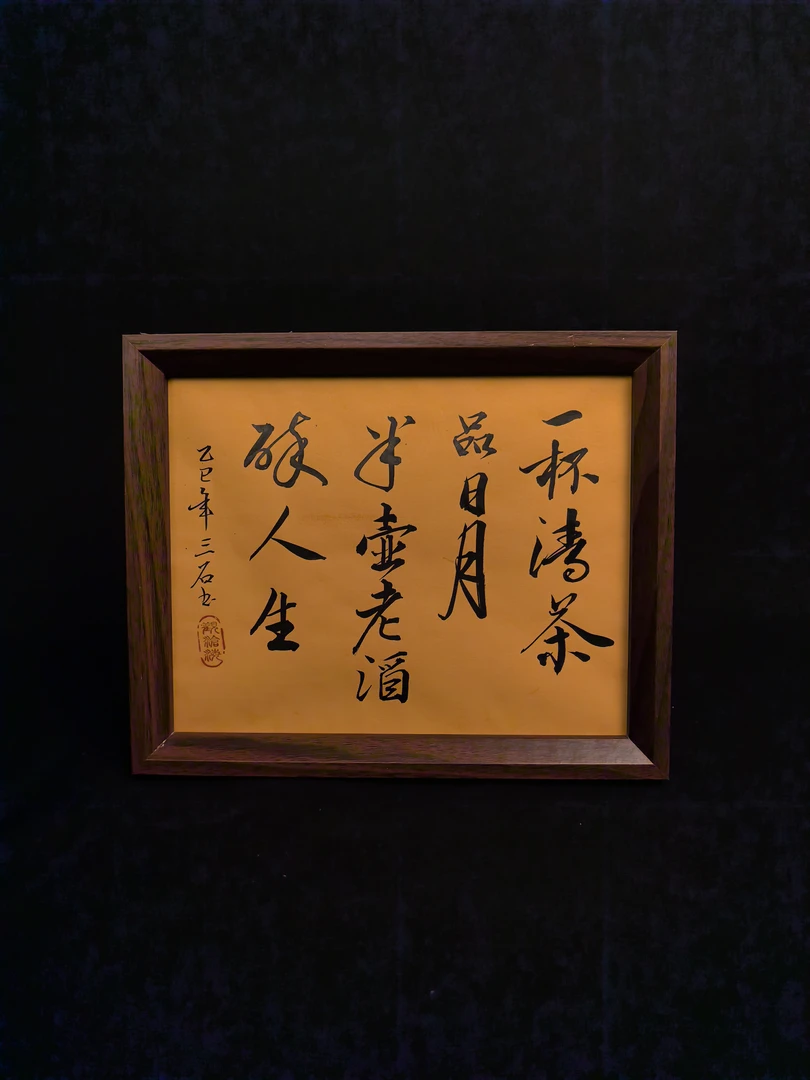 一杯清茶
品日月
半壶老酒
醉人生
乙巳年三石书